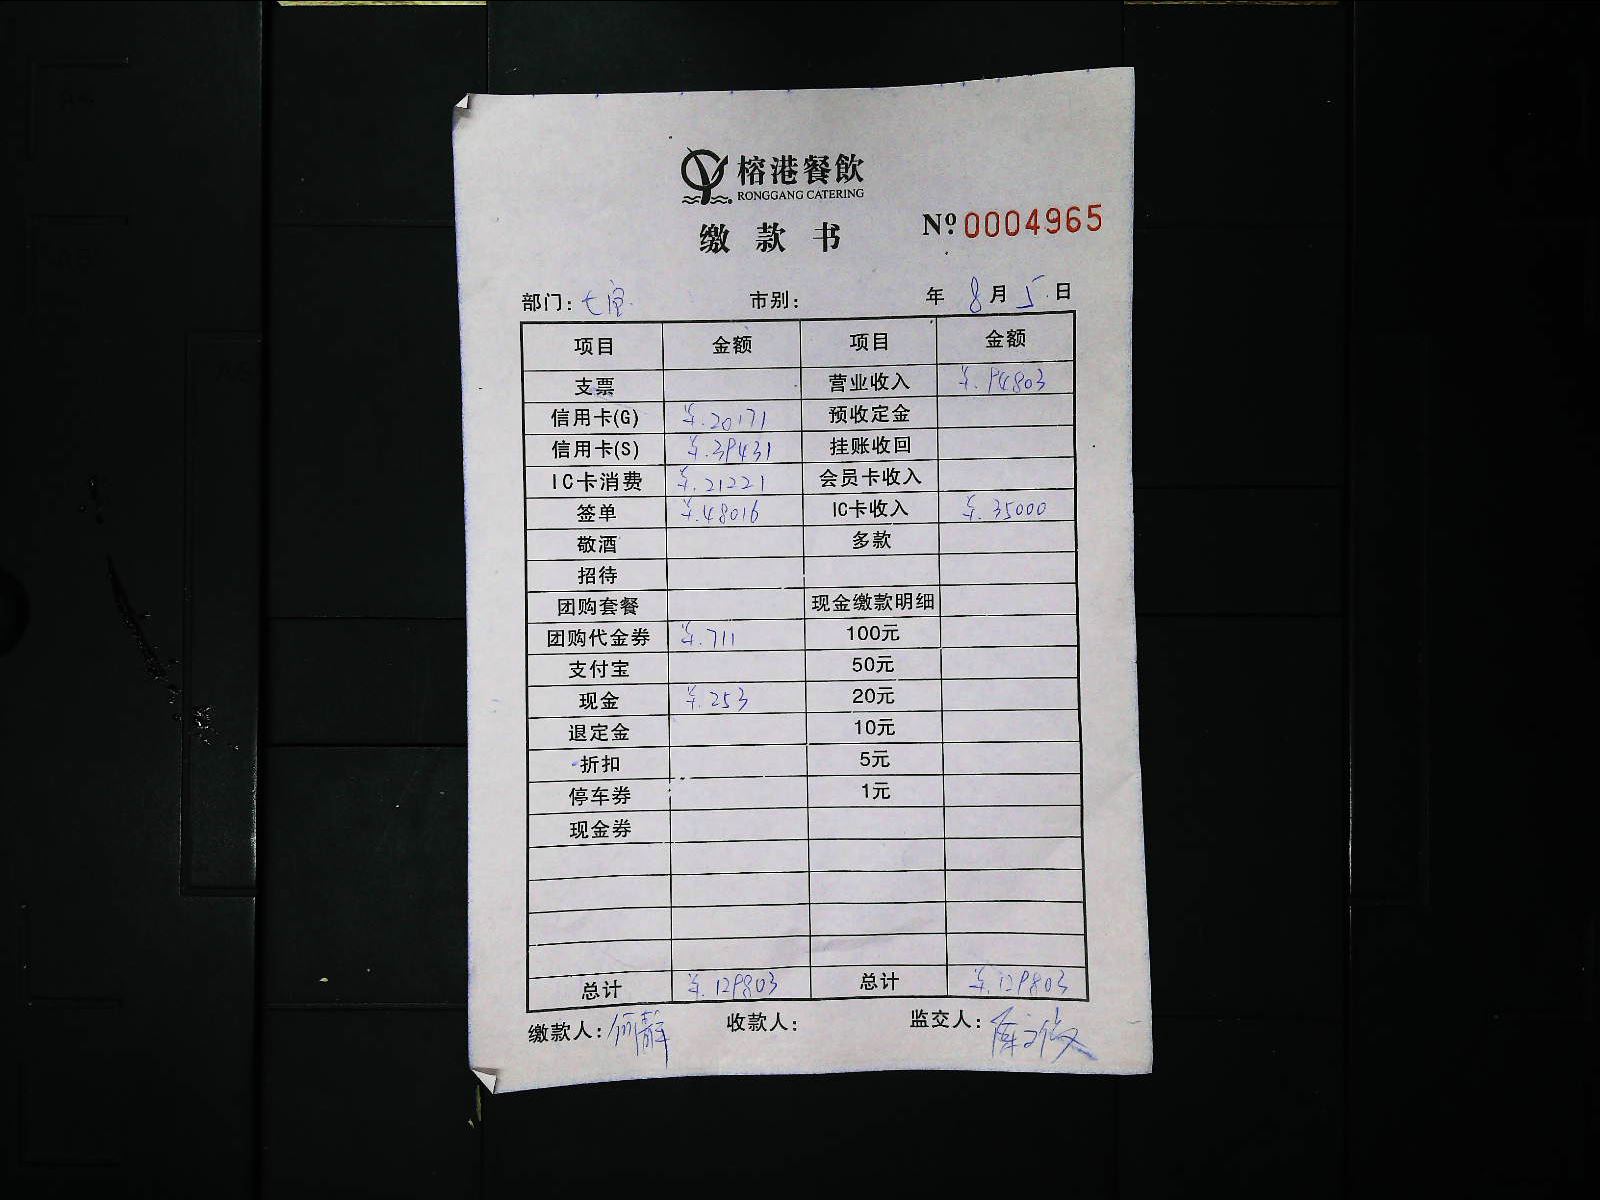 榕港餐飲
RONGGANG CATERING
缴款书 Nº 0004965
部门: 七 市别: 年 8月 5日
项目 金额 项目 金额
支票 营业收入 ¥.94803
信用卡(G) ¥.20171 预收定金
信用卡(S) ¥.39431 挂账收回
IC卡消费 ¥.21221 会员卡收入
签单 ¥.48016 IC卡收入 ¥.35000
敬酒 多款
招待
团购套餐 现金缴款明细
团购代金券 ¥.711 100元
支付宝 50元
现金 ¥.253 20元
退定金 10元
折扣 5元
停车券 1元
现金券
总计 ¥.129803 总计 ¥.129803
缴款人: 何静 收款人: 监交人: